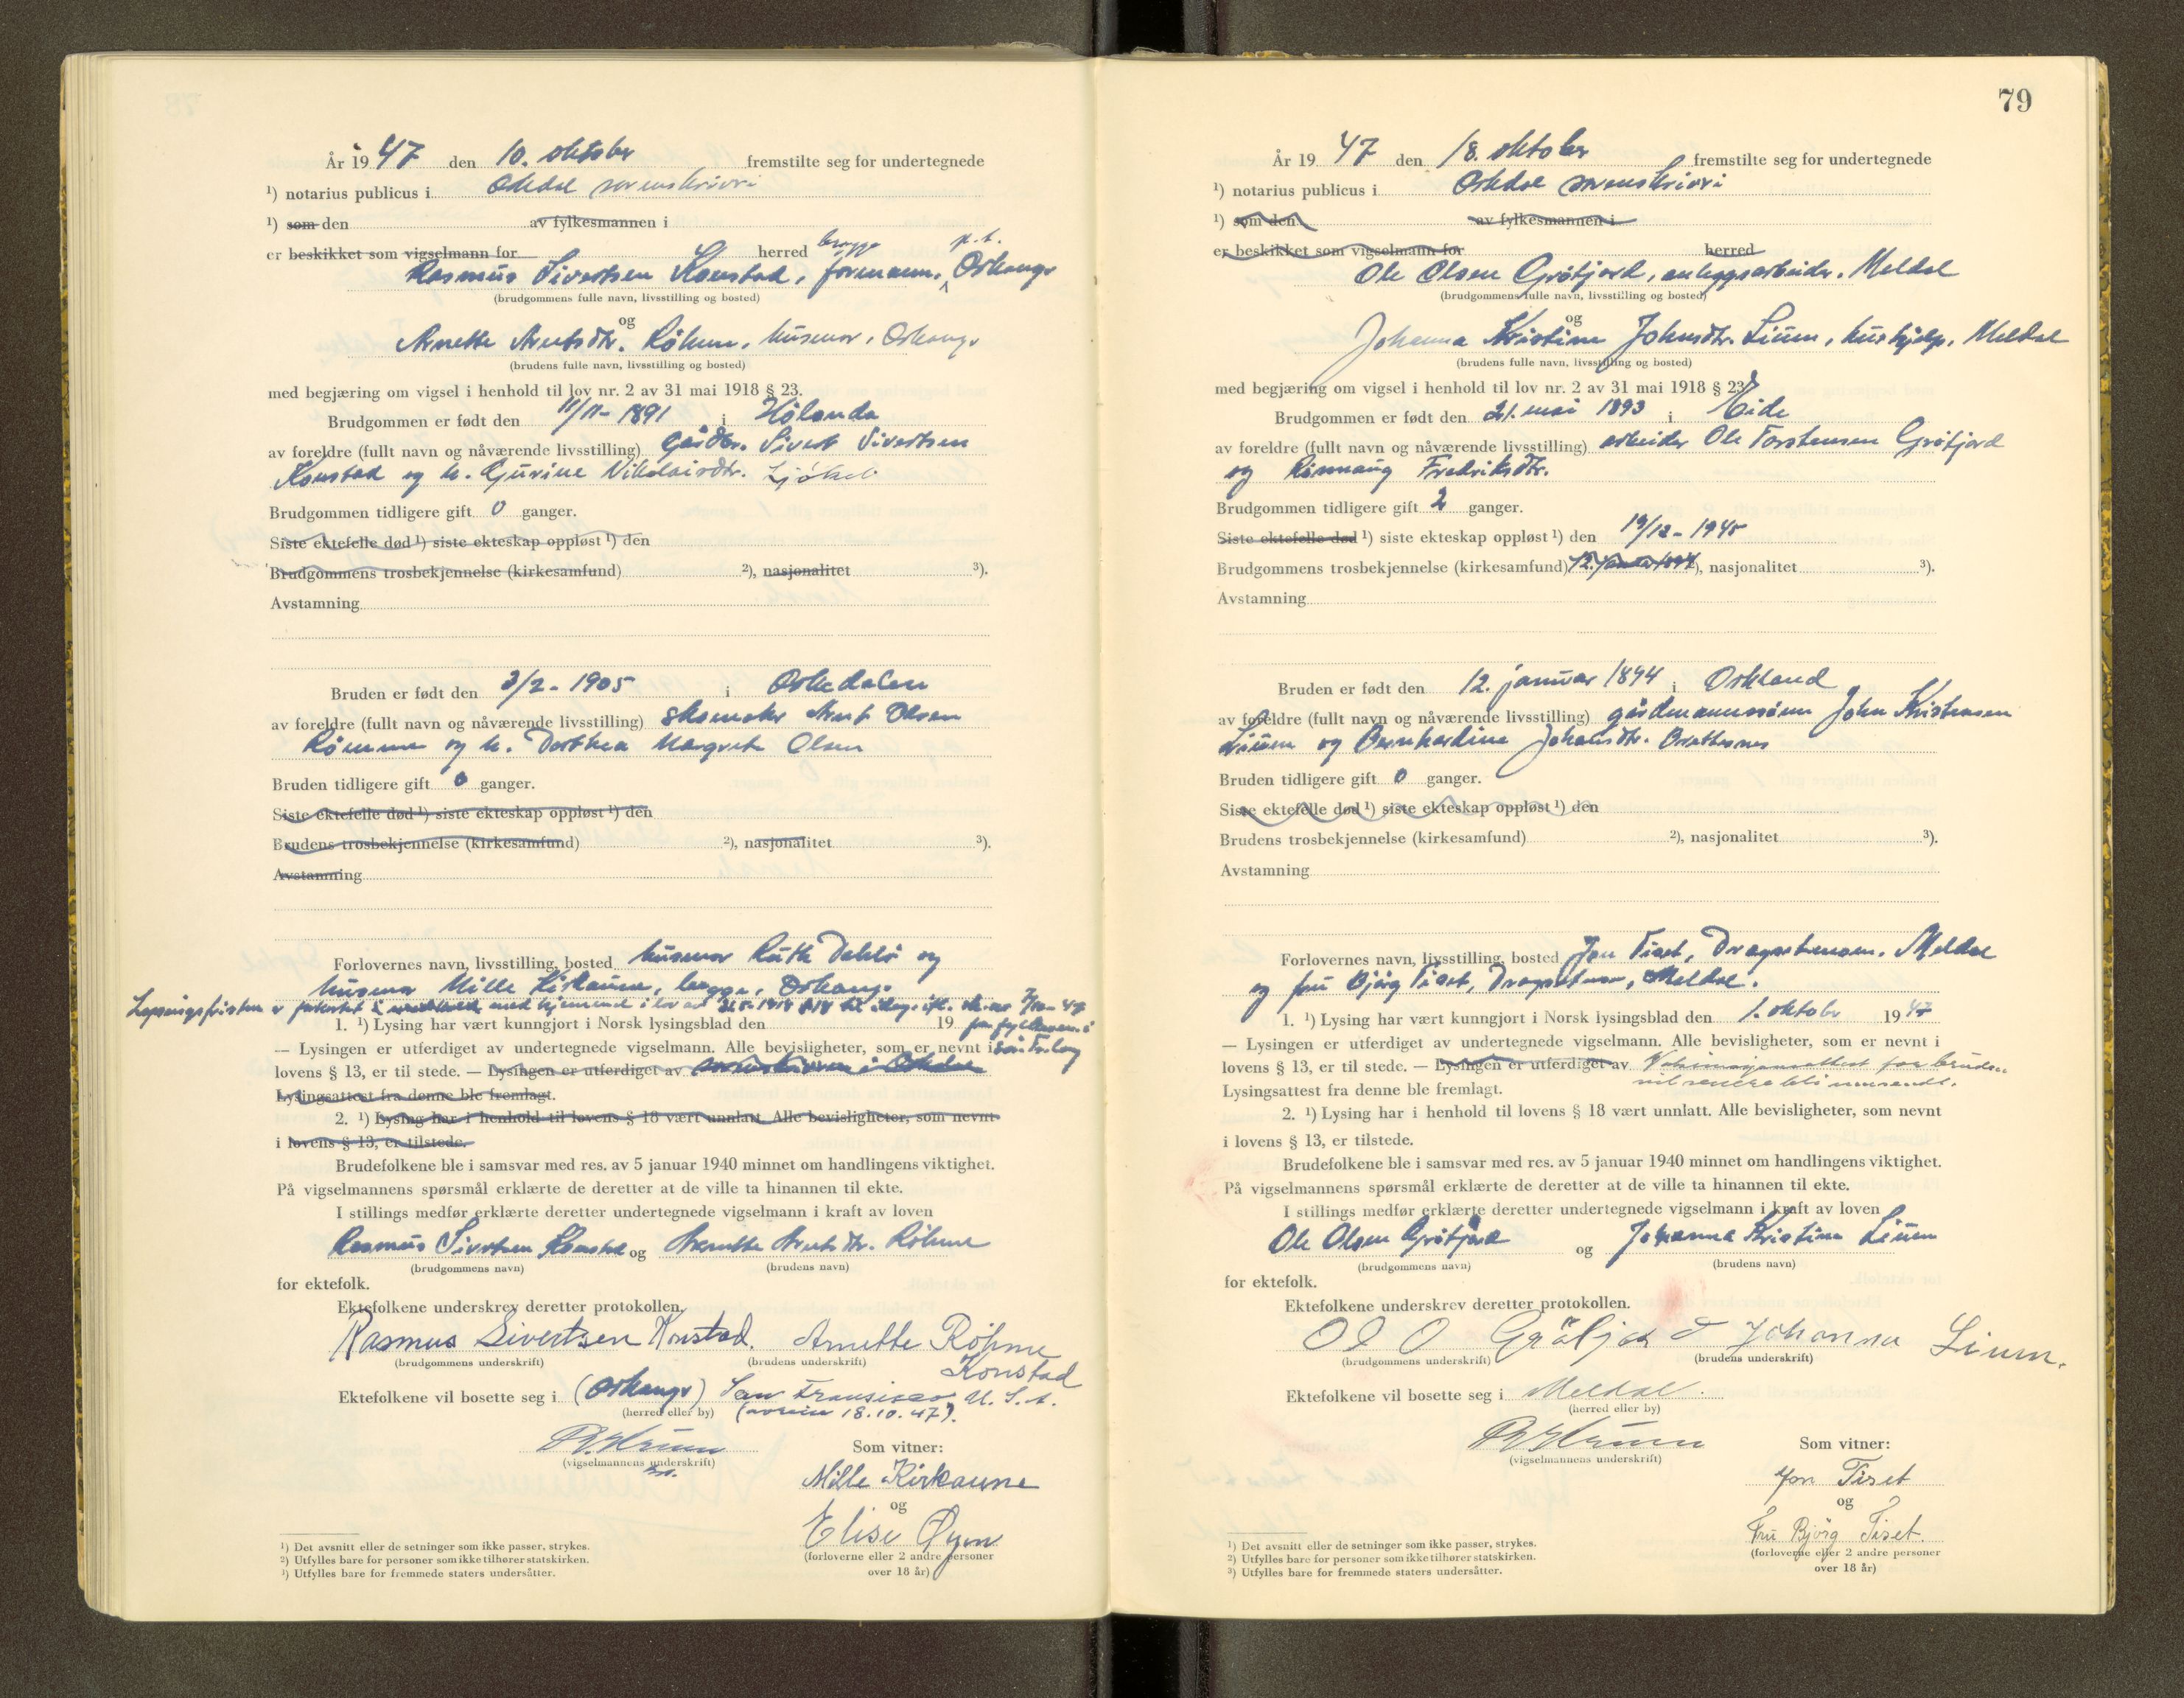 År 1947 den 10. oktober fremstilte seg for undertegnede
¹) notarius publicus i Orkdal sorenskriveri
¹) som den av fylkesmannen i
er beskikket som vigselmann for herred
begge p.t.
Rasmus Sivertsen Konstad, formann, Orkanger
(brudgommens fulle navn, livsstilling og bosted)
og
Arnette Arntsdtr. Röhme, husmor, Orkanger
(brudens fulle navn, livsstilling og bosted)
med begjæring om vigsel i henhold til lov nr. 2 av 31 mai 1918 § 23.
Brudgommen er født den 11/11- 1891 i Hölonda
av foreldre (fullt navn og nåværende livsstilling) gårdbr. Sivert Sivertsen
Konstad og h. Gurine Nikolaisdtr.
Brudgommen tidligere gift 0 ganger.
Siste ektefelle død ¹) siste ekteskap oppløst ¹) den
Brudgommens trosbekjennelse (kirkesamfund) ²), nasjonalitet ³).
Avstamning
Bruden er født den 3/2- 1905 i Orkedalen
av foreldre (fullt navn og nåværende livsstilling) skomaker Arnt Olsen
Römme og h. Dorthea Margrete Olsen
Bruden tidligere gift 0 ganger.
Siste ektefelle død ¹) siste ekteskap oppløst ¹) den
Brudens trosbekjennelse (kirkesamfund) ²), nasjonalitet ³).
Avstamning
Forlovernes navn, livsstilling, bosted husmor Ruth Dahlö og
husmor Mille Kirkaune, begge, Orkanger
Lysningsfristen er forkortet i med hjemmel i lov av 31.5.1918 §18 til dag ifl. skr. av 7/10-47
1. ¹) Lysing har vært kunngjort i Norsk lysingsblad den 19 fra fylkesm. i
— Lysingen er utferdiget av undertegnede vigselmann. Alle bevisligheter, som er nevnt i Sör-Trlag
lovens § 13, er til stede. — Lysingen er utferdiget av sorenskriveren i Orkdal
Lysingsattest fra denne ble fremlagt.
2. ¹) Lysing har i henhold til lovens § 18 vært unnlatt. Alle bevisligheter, som nevnt
i lovens § 13, er tilstede.
Brudefolkene ble i samsvar med res. av 5 januar 1940 minnet om handlingens viktighet.
På vigselmannens spørsmål erklærte de deretter at de ville ta hinannen til ekte.
I stillings medfør erklærte deretter undertegnede vigselmann i kraft av loven
Rasmus Sivertsen Konstad og Arnette Arntsdtr. Röhme
(brudgommens navn) (brudens navn)
for ektefolk.
Ektefolkene underskrev deretter protokollen.
Rasmus Sivertsen Konstad. Arnette Röhme
(brudgommens underskrift) (brudens underskrift)
Konstad
Ektefolkene vil bosette seg i (Orkanger) San Fransisco, U.S.A.
(herred eller by) (avreise 18.10.47).
(vigselmannens underskrift)
Som vitner:
Mille Kirkaune
og
Elise Øyen
(forloverne eller 2 andre personer
over 18 år)
¹) Det avsnitt eller de setninger som ikke passer, strykes.
²) Utfylles bare for personer som ikke tilhører statskirken.
³) Utfylles bare for fremmede staters undersåtter.
79
År 1947 den 18. oktober fremstilte seg for undertegnede
¹) notarius publicus i Orkdal sorenskriveri
¹) som den av fylkesmannen i
er beskikket som vigselmann for herred
Ole Olsen Gråfjord, anleggsarbeider, Meldal
(brudgommens fulle navn, livsstilling og bosted)
og
Johanna Kristine Johnsdtr. Lium, hushjelp, Meldal
(brudens fulle navn, livsstilling og bosted)
med begjæring om vigsel i henhold til lov nr. 2 av 31 mai 1918 § 23.
Brudgommen er født den 21. mai 1893 i Eide
av foreldre (fullt navn og nåværende livsstilling) arbeider Ole Torstensen Gråfjord
og Rönnaug Fredriksdtr.
Brudgommen tidligere gift 2 ganger.
Siste ektefelle død ¹) siste ekteskap oppløst ¹) den 19/12- 1945
Brudgommens trosbekjennelse (kirkesamfund) 12. januar 1894 ²), nasjonalitet ³).
Avstamning
Bruden er født den 12. januar 1894 i Orkland
av foreldre (fullt navn og nåværende livsstilling) gårdmannssönn John Kristensen
Lium og Bernhardine Johansdtr. Brattesnes
Bruden tidligere gift 0 ganger.
Siste ektefelle død ¹) siste ekteskap oppløst ¹) den
Brudens trosbekjennelse (kirkesamfund) ²), nasjonalitet ³).
Avstamning
Forlovernes navn, livsstilling, bosted Jon Tiset, Dragsetmoen, Meldal
og fru Björg Tiset, Dragsetmoen, Meldal.
1. ¹) Lysing har vært kunngjort i Norsk lysingsblad den 1. oktober 1947
— Lysingen er utferdiget av undertegnede vigselmann. Alle bevisligheter, som er nevnt i
lovens § 13, er til stede. — Lysingen er utferdiget av Vaksinasjonsattest for bruden
vil senere bli innsendt.
Lysingsattest fra denne ble fremlagt.
2. ¹) Lysing har i henhold til lovens § 18 vært unnlatt. Alle bevisligheter, som nevnt
i lovens § 13, er tilstede.
Brudefolkene ble i samsvar med res. av 5 januar 1940 minnet om handlingens viktighet.
På vigselmannens spørsmål erklærte de deretter at de ville ta hinannen til ekte.
I stillings medfør erklærte deretter undertegnede vigselmann i kraft av loven
Ole Olsen Gråfjord og Johanna Kristine Lium
(brudgommens navn) (brudens navn)
for ektefolk.
Ektefolkene underskrev deretter protokollen.
Johanna Lium.
(brudgommens underskrift) (brudens underskrift)
Ektefolkene vil bosette seg i Meldal.
(herred eller by)
(vigselmannens underskrift)
Som vitner:
Jon Tiset
og
Fru Björg Tiset
(forloverne eller 2 andre personer
over 18 år)
¹) Det avsnitt eller de setninger som ikke passer, strykes.
²) Utfylles bare for personer som ikke tilhører statskirken.
³) Utfylles bare for fremmede staters undersåtter.